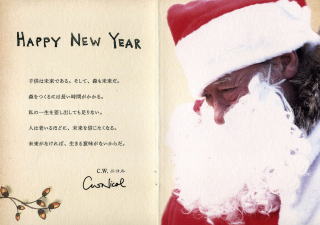 HAPPY NEW YEAR
子供は未来である。そして、森も未来だ。
森をつくるには長い時間がかかる。
私の一生を差し出しても足りない。
人は老いるほどに、未来を信じたくなる。
未来がなければ、生きる意味がないからだ。
C.W. ニコル
CW Nicol